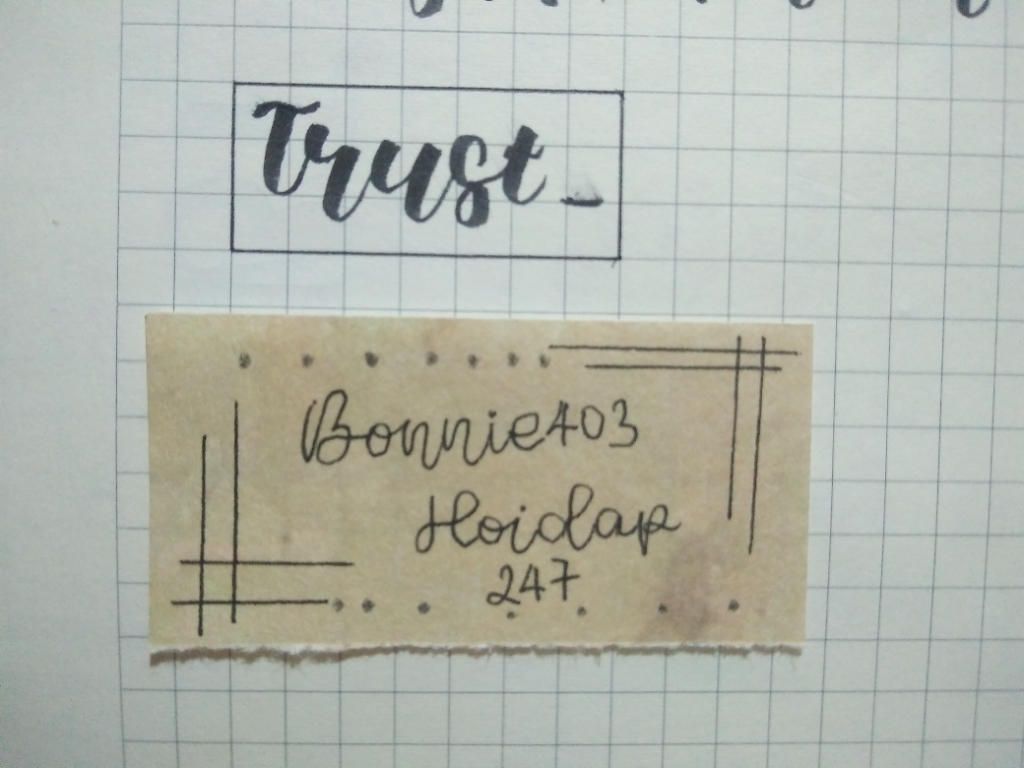 Trust_
Bonnie403
Hoidap
247